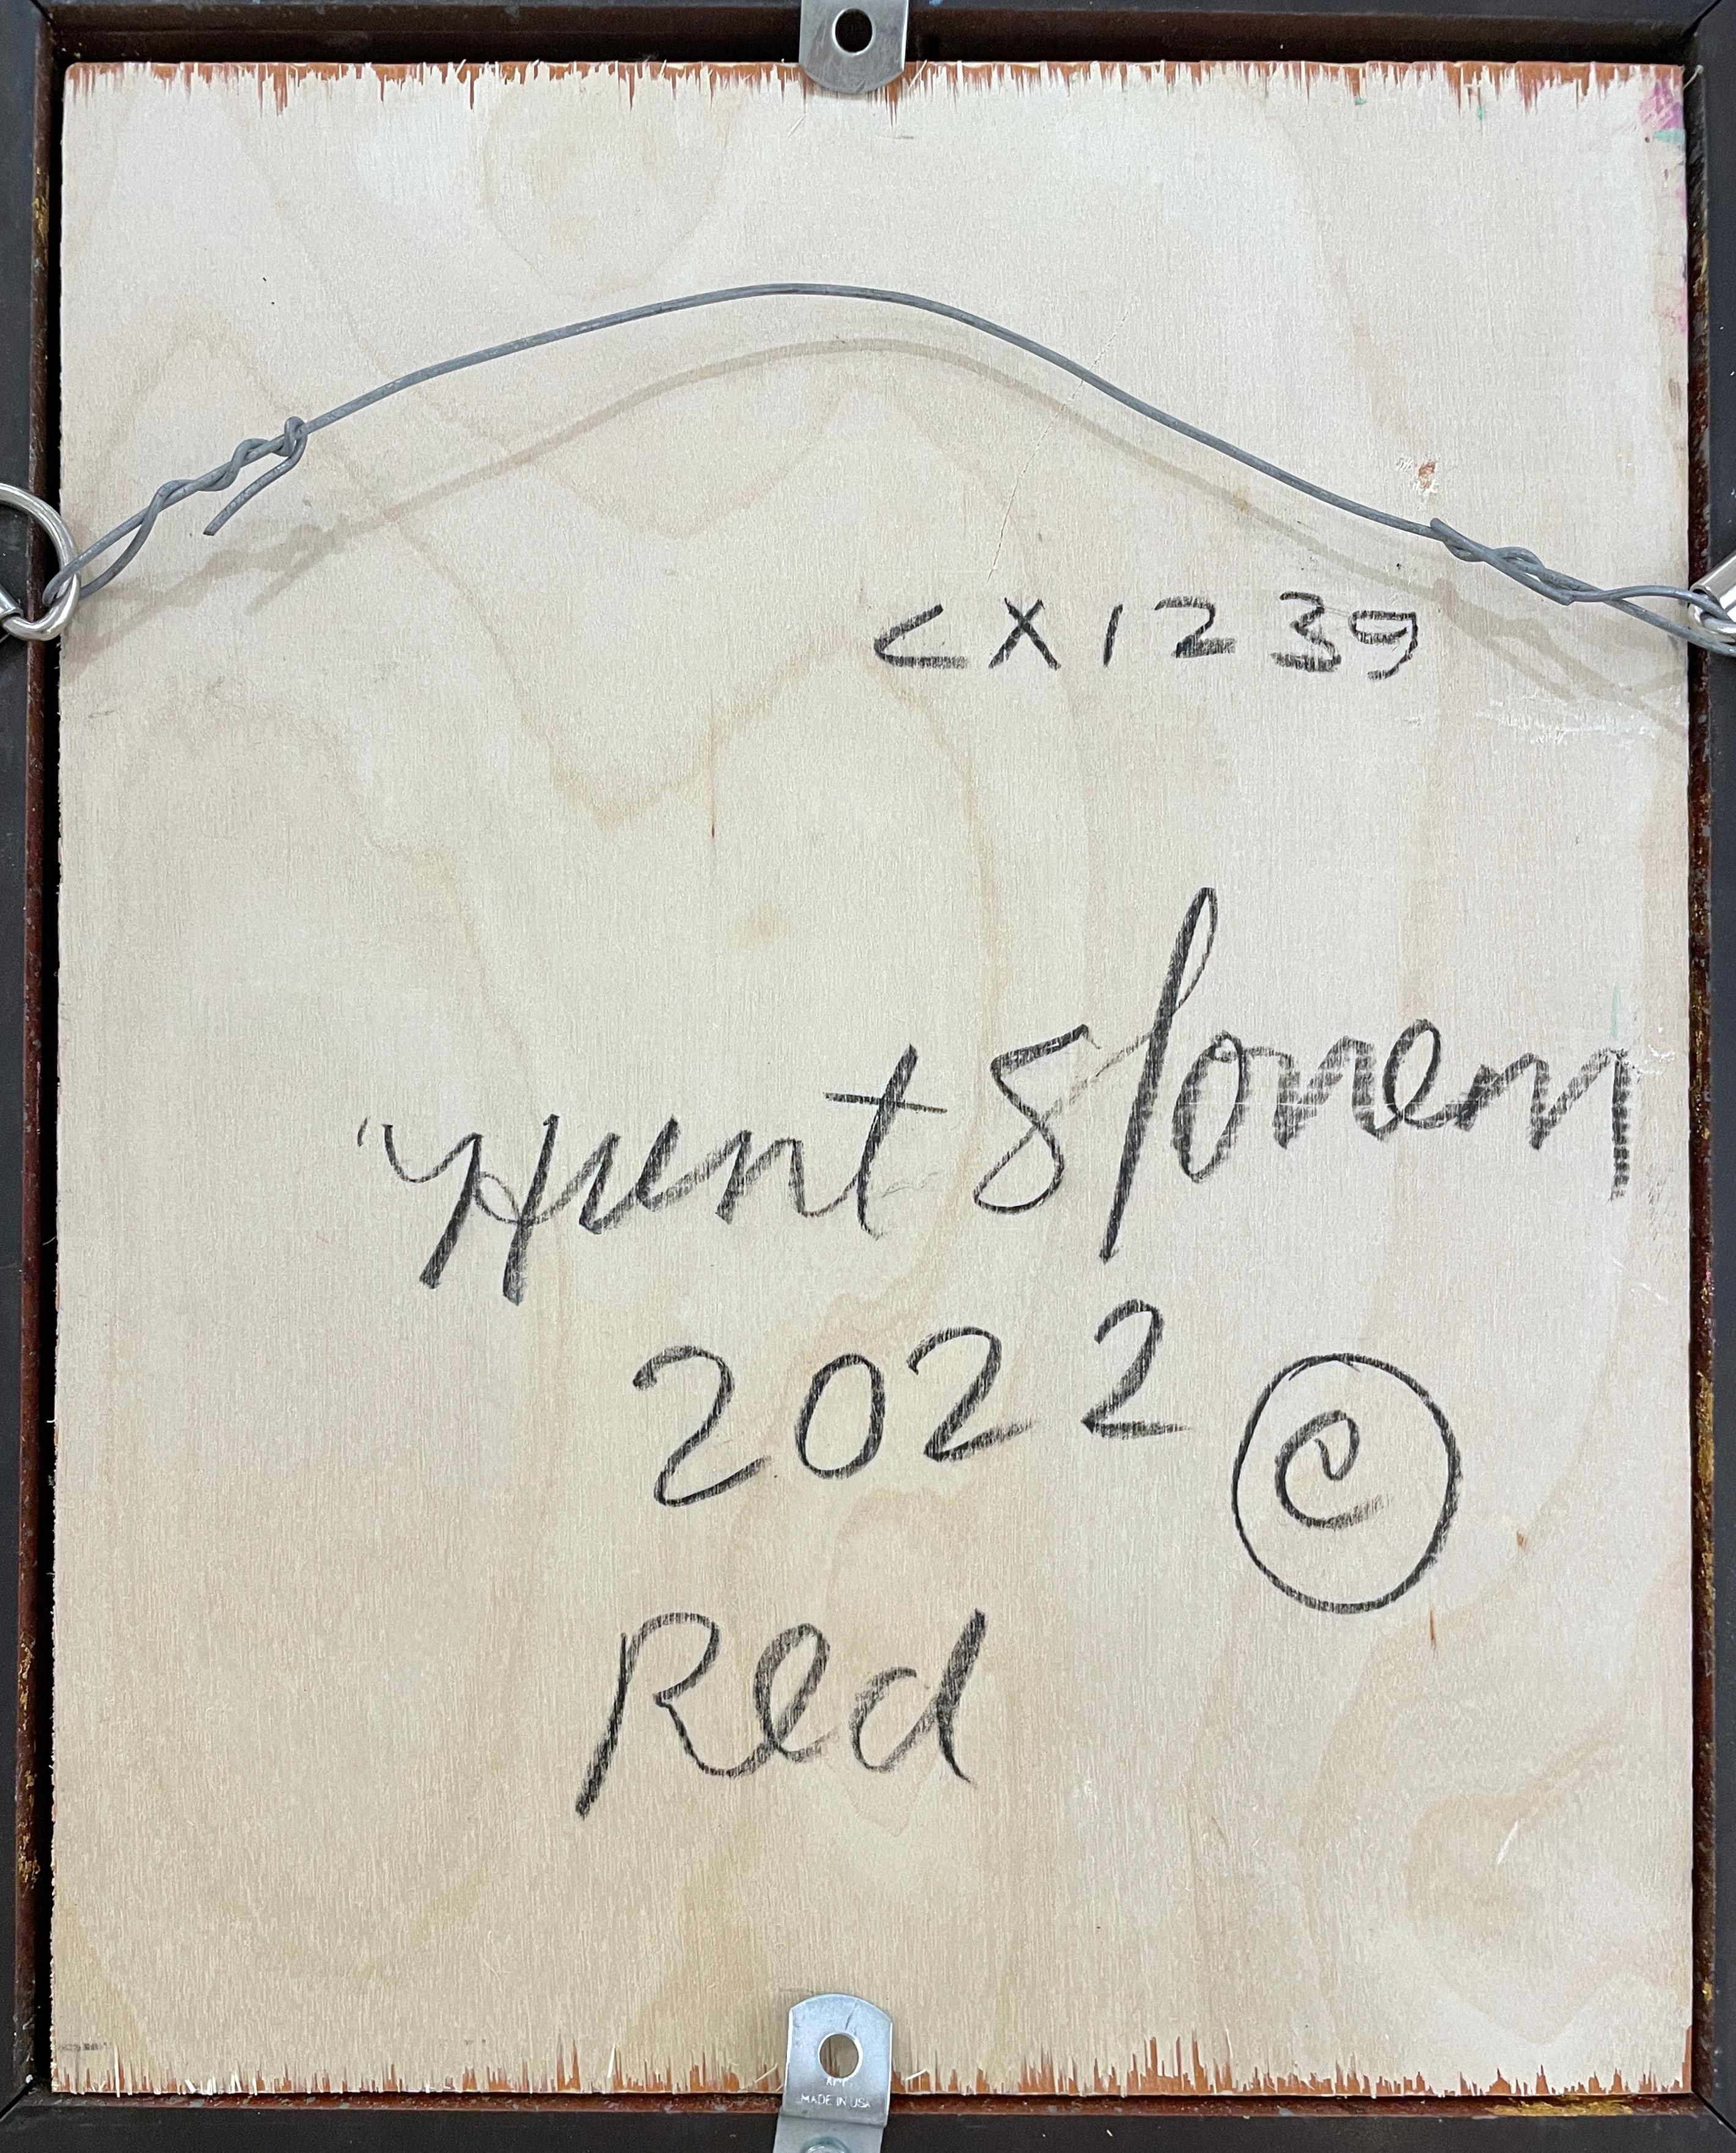 CX1239
Hunt Slonem
2022 ©
Red
MADE IN USA